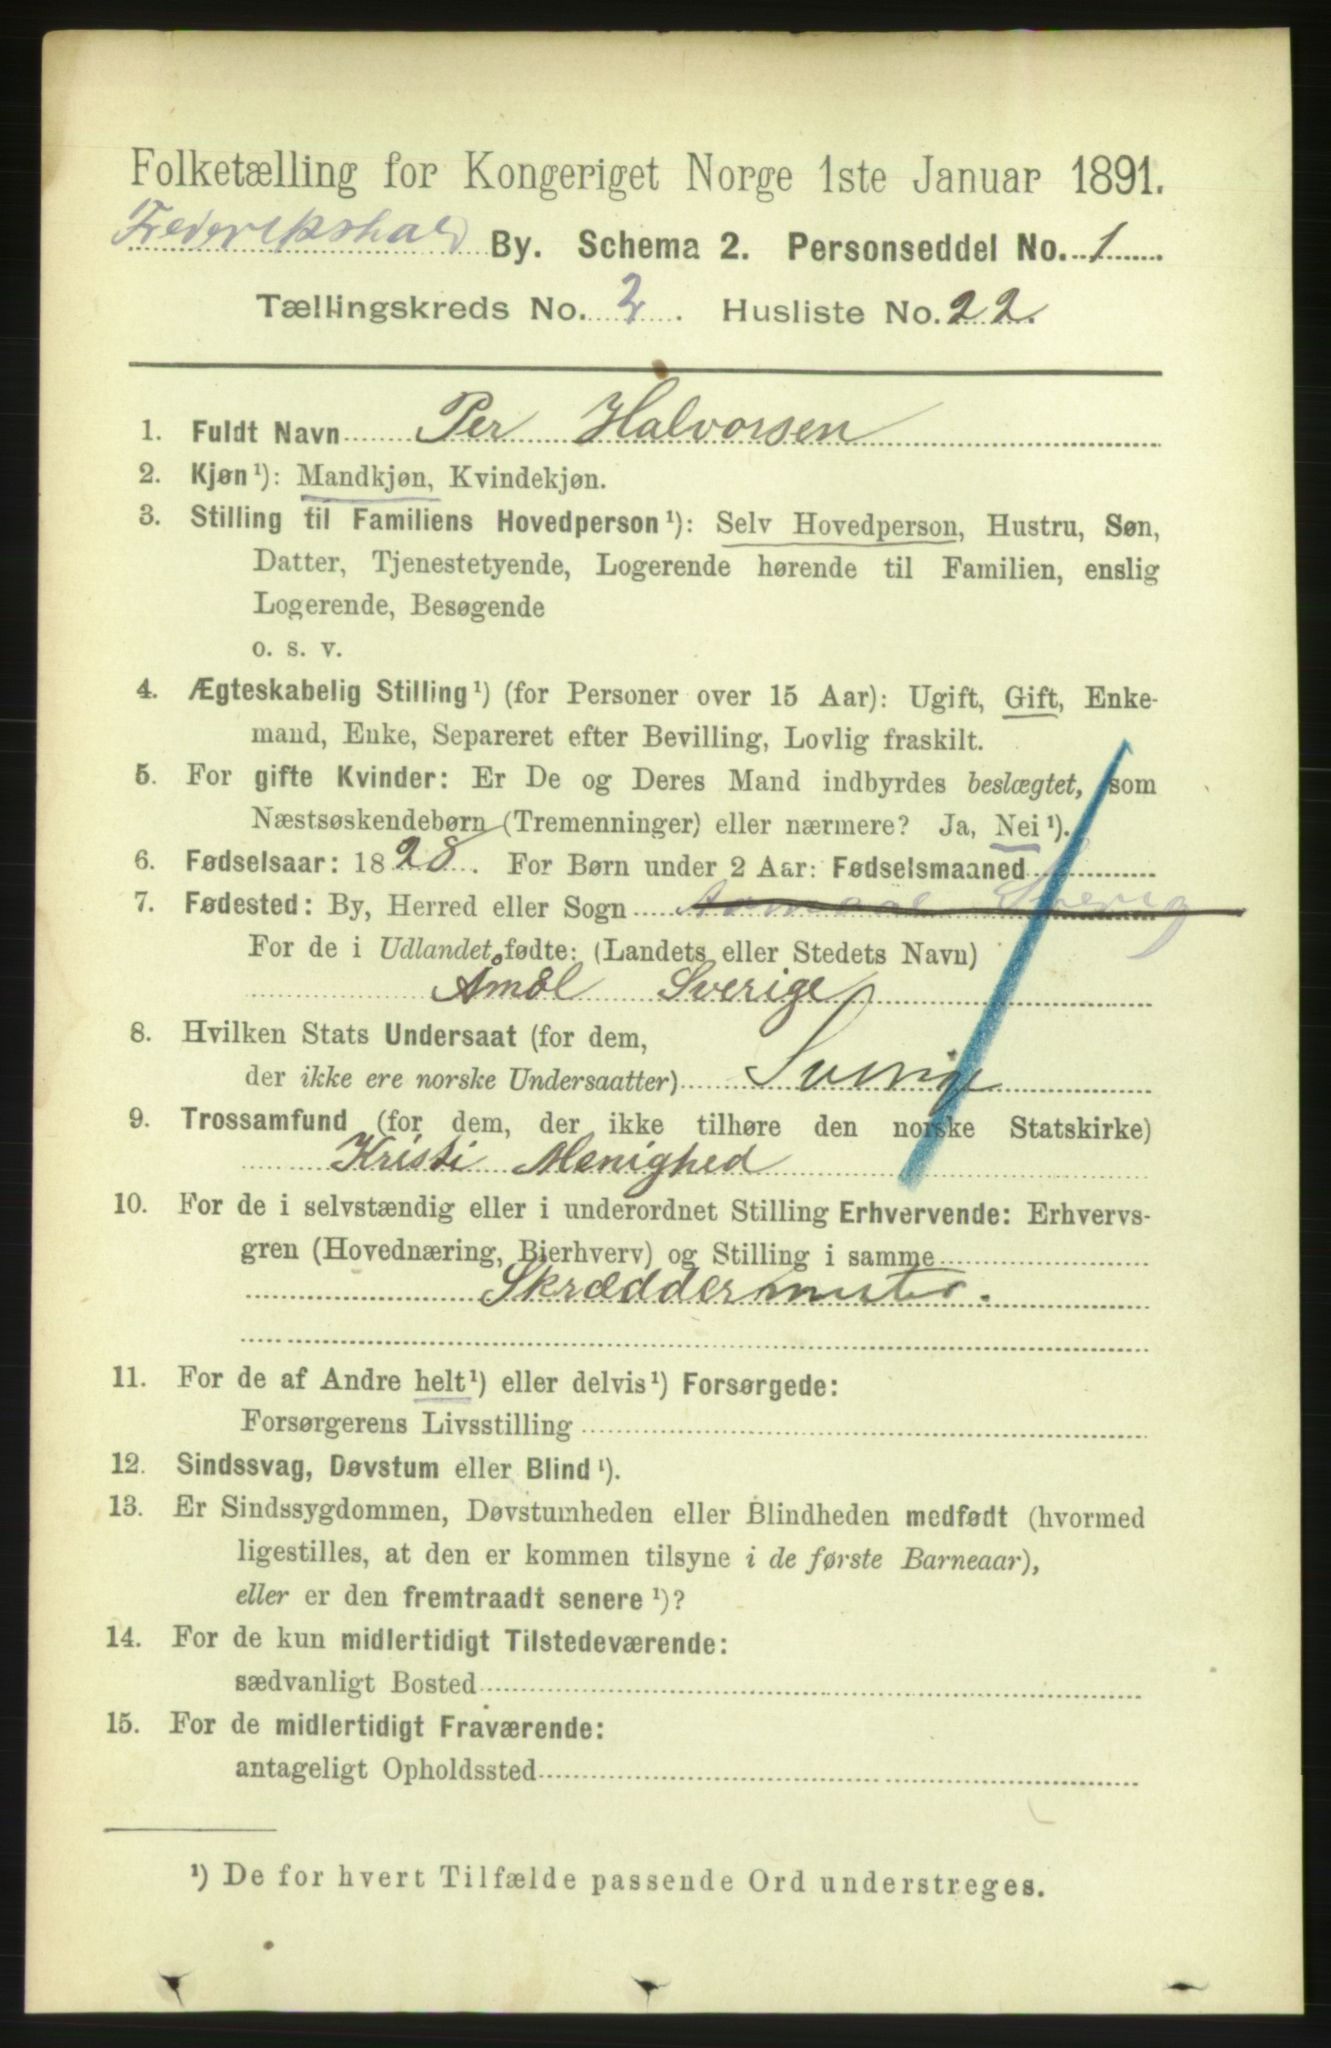 Folketælling for Kongeriget Norge 1ste Januar 1891.
Frederikshald By. Schema 2. Personseddel No. 1
Tællingskreds No. 2. Husliste No. 22.
1. Fuldt Navn Per Halvorsen
2. Kjøn¹): Mandkjøn, Kvindekjøn.
3. Stilling til Familiens Hovedperson¹): Selv Hovedperson, Hustru, Søn,
Datter, Tjenestetyende, Logerende hørende til Familien, enslig
Logerende, Besøgende
o. s. v.
4. Ægteskabelig Stilling¹) (for Personer over 15 Aar): Ugift, Gift, Enke-
mand, Enke, Separeret efter Bevilling, Lovlig fraskilt.
5. For gifte Kvinder: Er De og Deres Mand indbyrdes beslægtet, som
Næstsøskendebørn (Tremenninger) eller nærmere? Ja, Nei¹).
6. Fødselsaar: 1828. For Børn under 2 Aar: Fødselsmaaned
7. Fødested: By, Herred eller Sogn Sverig
For de i Udlandet fødte: (Landets eller Stedets Navn)
Åmål Sverige
8. Hvilken Stats Undersaat (for dem,
der ikke ere norske Undersaatter) Sverige
9. Trossamfund (for dem, der ikke tilhøre den norske Statskirke)
Kristi Menighed
10. For de i selvstændig eller i underordnet Stilling Erhvervende: Erhvervs-
gren (Hovednæring, Bierhverv) og Stilling i samme
Skræddermester.
11. For de af Andre helt¹) eller delvis¹) Forsørgede:
Forsørgerens Livsstilling
12. Sindssvag, Døvstum eller Blind¹).
13. Er Sindssygdommen, Døvstumheden eller Blindheden medfødt (hvormed
ligestilles, at den er kommen tilsyne i de første Barneaar),
eller er den fremtraadt senere¹)?
14. For de kun midlertidigt Tilstedeværende:
sædvanligt Bosted
15. For de midlertidigt Fraværende:
antageligt Opholdssted
¹) De for hvert Tilfælde passende Ord understreges.